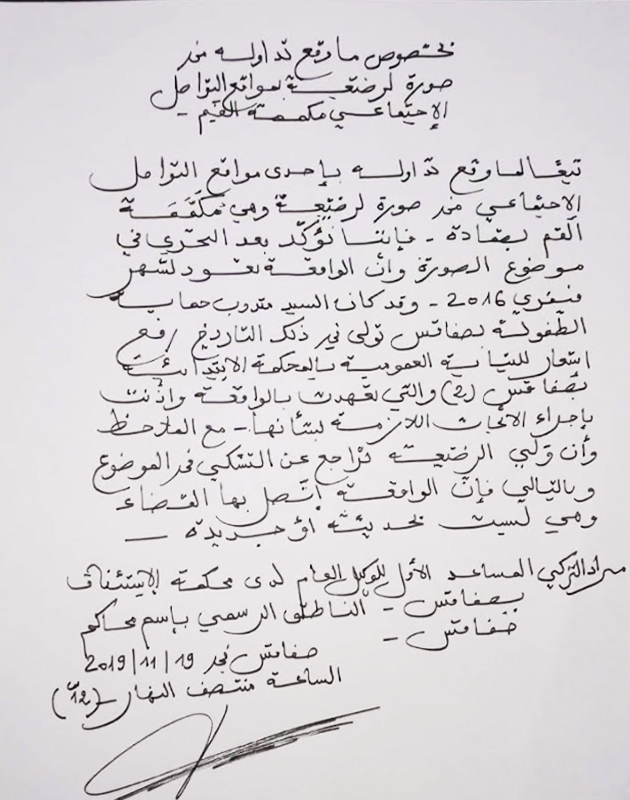 بخصوص ما وقع تداوله من
صورة لرضيعة بمواقع التواصل
الإجتماعي مكممة الفم -
تبعًا لما وقع تداوله بإحدى مواقع التواصل
الإجتماعي من صورة لرضيعة وهي مكمّمة
الفم بضمادة - فإننا نؤكّد بعد التحري في
موضوع الصورة وأن الواقعة تعود لشهر
فيفري 2016 - وقد كان السيد مندوب حماية
الطفولة بصفاقس تولى في ذلك التاريخ رفع
إشعار للنيابة العمومية بالمحكمة الابتدائية
بصفاقس (2) والتي تعهدت بالواقعة وأذنت
بإجراء الأبحاث اللازمة بشأنها - مع الملاحظ
وأن ولي الرضيعة تراجع عن التشكي في الموضوع
وبالتالي فإنّ الواقعة إتّصل بها القضاء
وهي ليست بحديثة أو جديدة -
مراد التركي المساعد الأول للوكيل العام لدى محكمة الإستئناف
بصفاقس - الناطق الرسمي بإسم محاكم
صفاقس -
صفاقس في 19/11/2019
الساعة منتصف النهار (12)